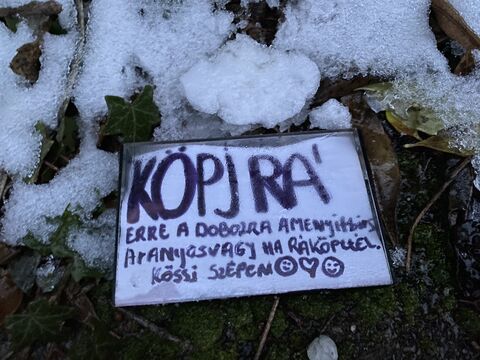 KÖPJ RÁ
ERRE A DOBOZRA AMENYIBEN
ARANYOSVAGY HA RÁKÖPTÉL.
KÖSZI SZÉPEN